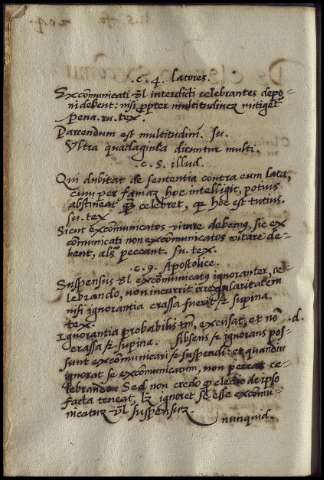 .c. 4. latores.
Excõmunicati vl interdicti celebrantes depo-
ni debent: nisi propter multitudinez mitiget̃
pena. su. tex.
Parcendum est multitudini. su.
Vltra quadraginta dicuntur multi.
.c. 5. illud.
Qui dubitat de sententia contra eum lata,
cum per famaz hoc intelligit, potius
abstineat q̃z celebret, q̃ hoc est tutius.
su. tex
Sicut excõmunicatos vitare debemus, sic ex
cõmunicati non excõmunicatos vitare de-
bent, als peccant. su. tex.
.c. 9. Apostolice.
Suspensus vl excõmunicatus ignoranter, ce-
lebrando, non incurrit irregularitatem
nisi ignorantia crassa fuerit sł supina.
tex.
Ignorantia probabilis tm̃, excusat, et nõ .d.
crassa sł supina. absens sł ignorans pos-
sunt excõmunicari sł suspendi: et quandiu
ignorat se excõmunicatum, non peccat ce-
lebrando. Sed non credo q̃ electio de ipso
facta teneat, lz ignoret se esse excõmu-
nicatuz vl suspensuz
nunquid.